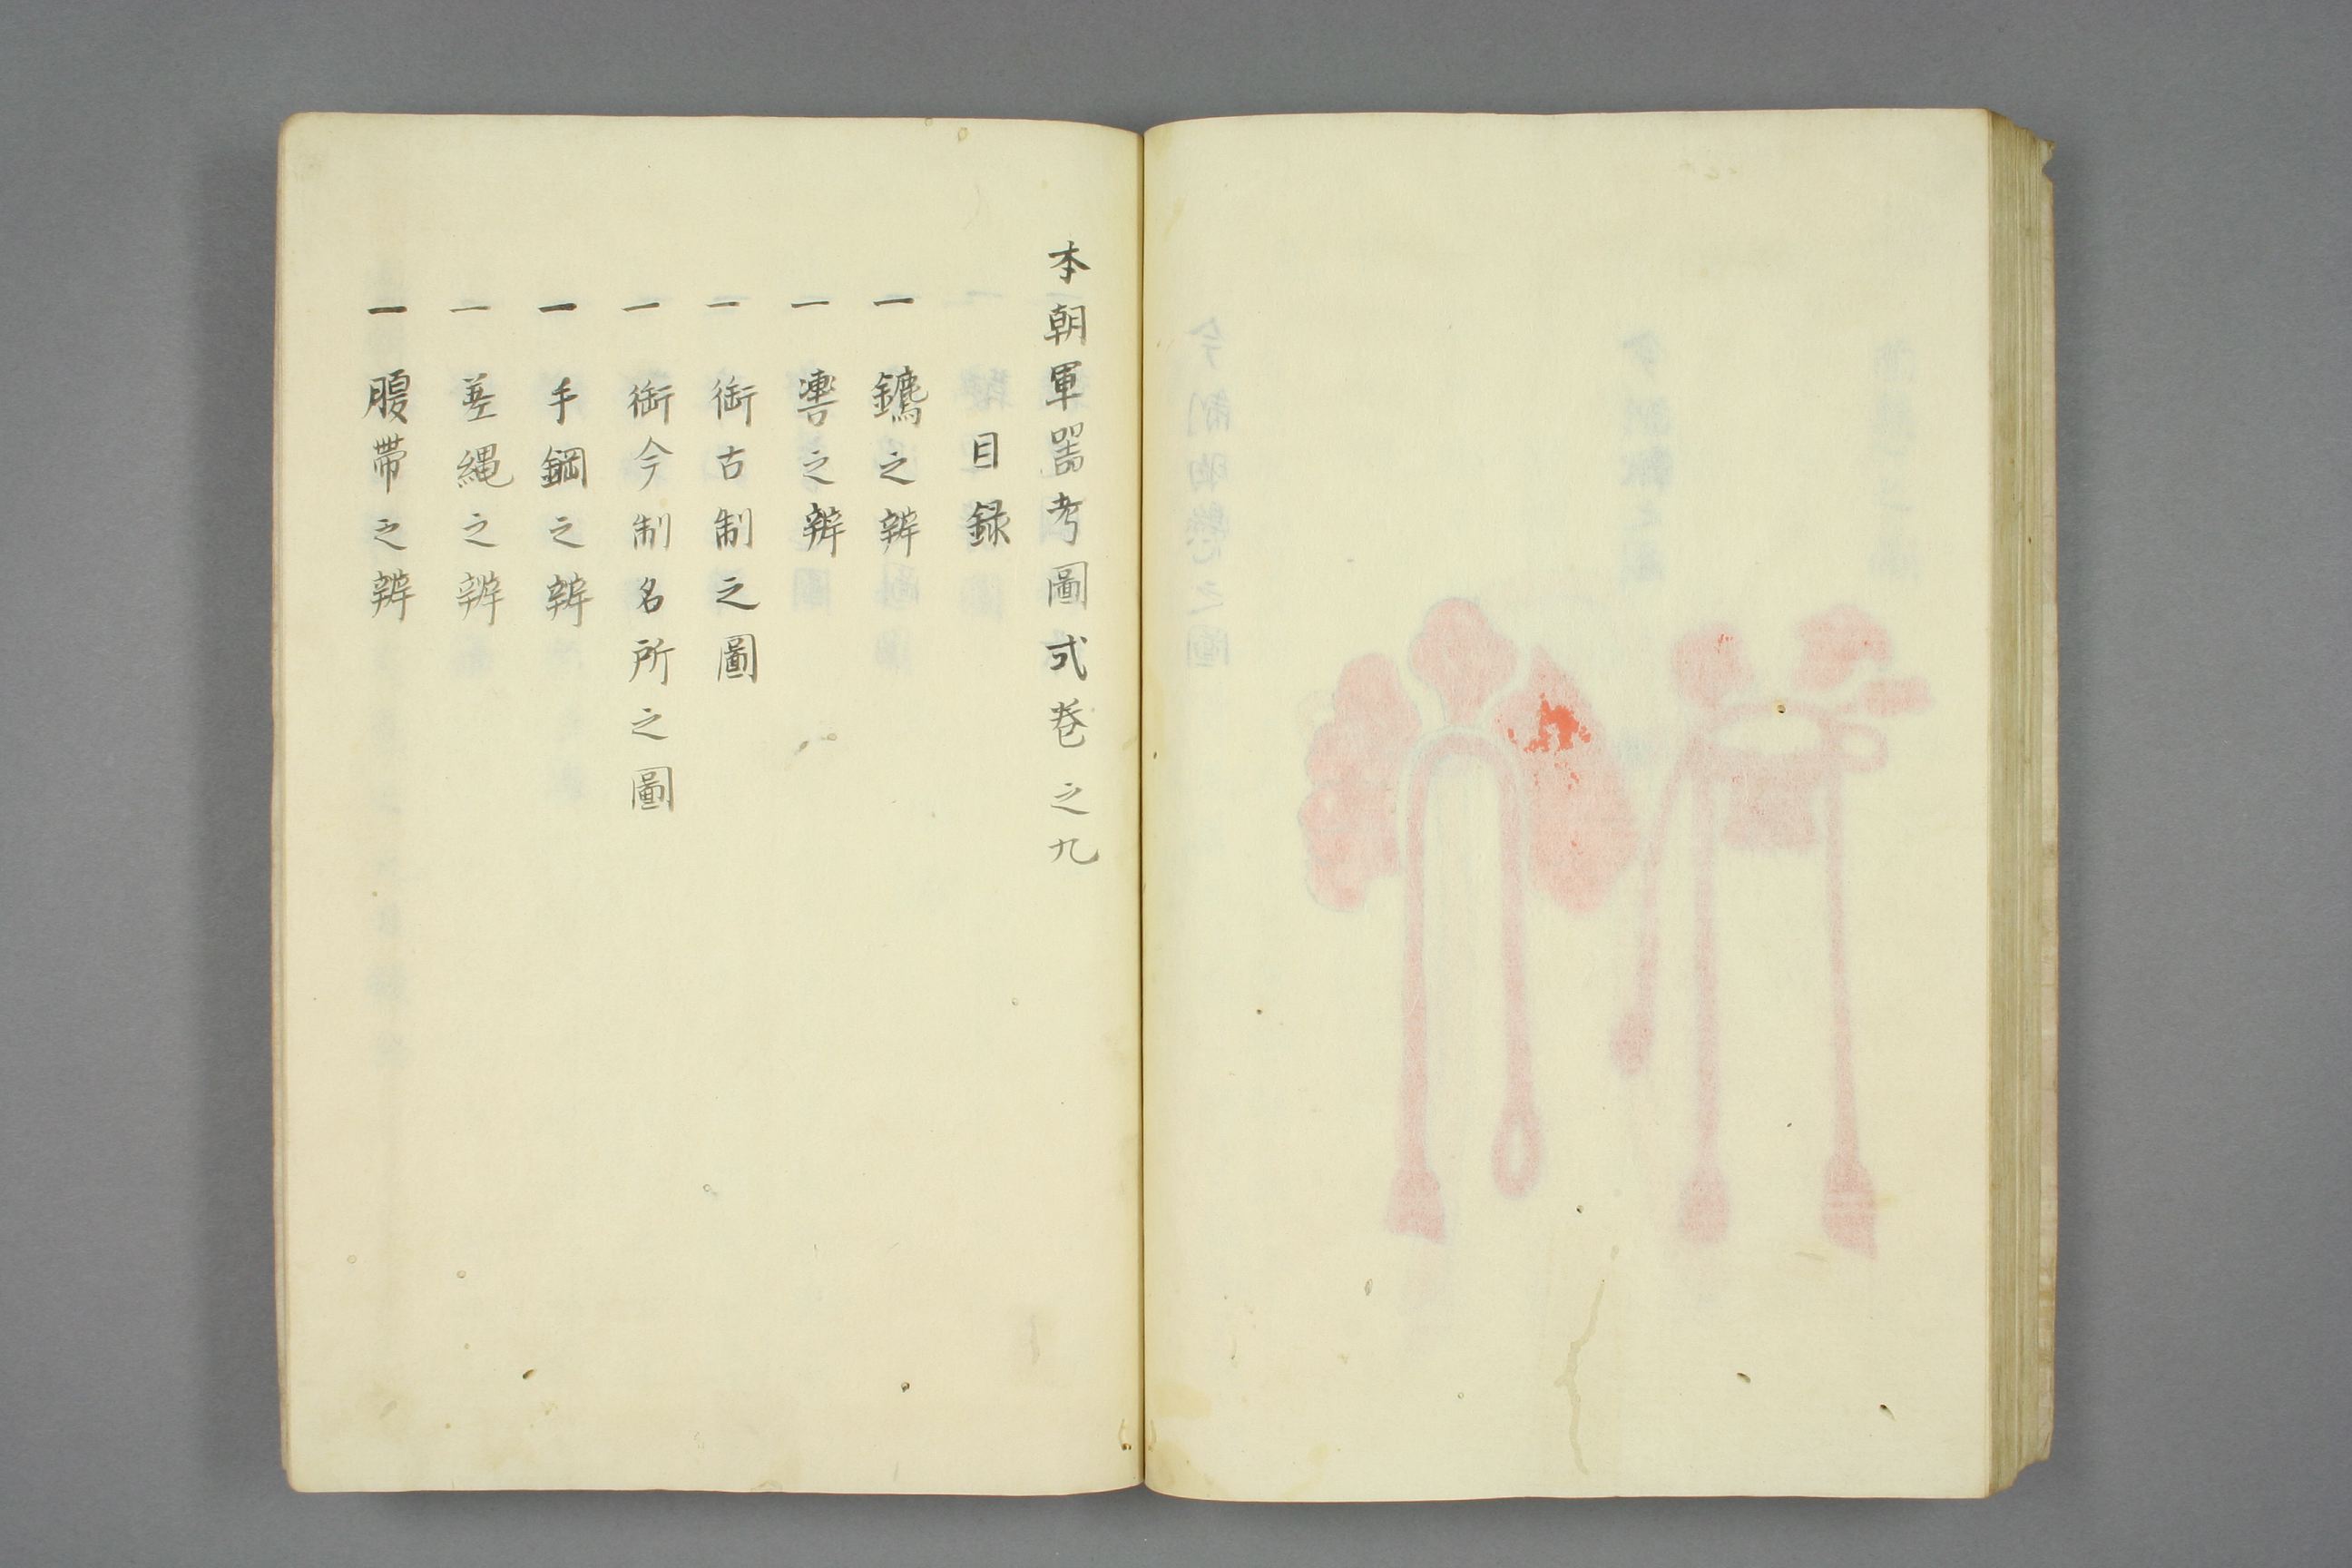 本朝軍噐考圖式巻之九
目録
一 鑣之辨
一 轡之辨
一 銜古制之圖
一 銜今制名所之圖
一 手鋼之辨
一 差縄之辨
一 腹帯之辨